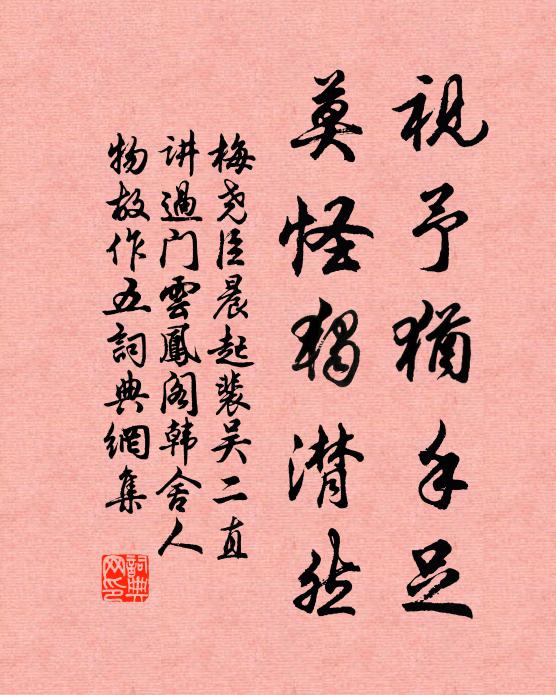 視予猶手足
莫怪獨潸然
梅尧臣晨起裴吴二直
讲過门雲鳳阁韩舍人
物故作五詞典網集
詞典網印